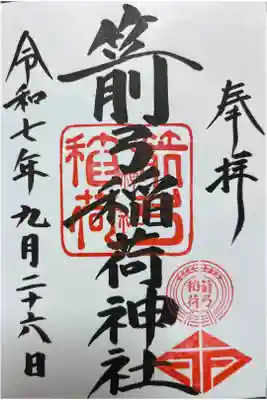 奉拝
箭弓稲荷神社
令和七年九月二十六日
箭弓稲荷
箭弓稲荷